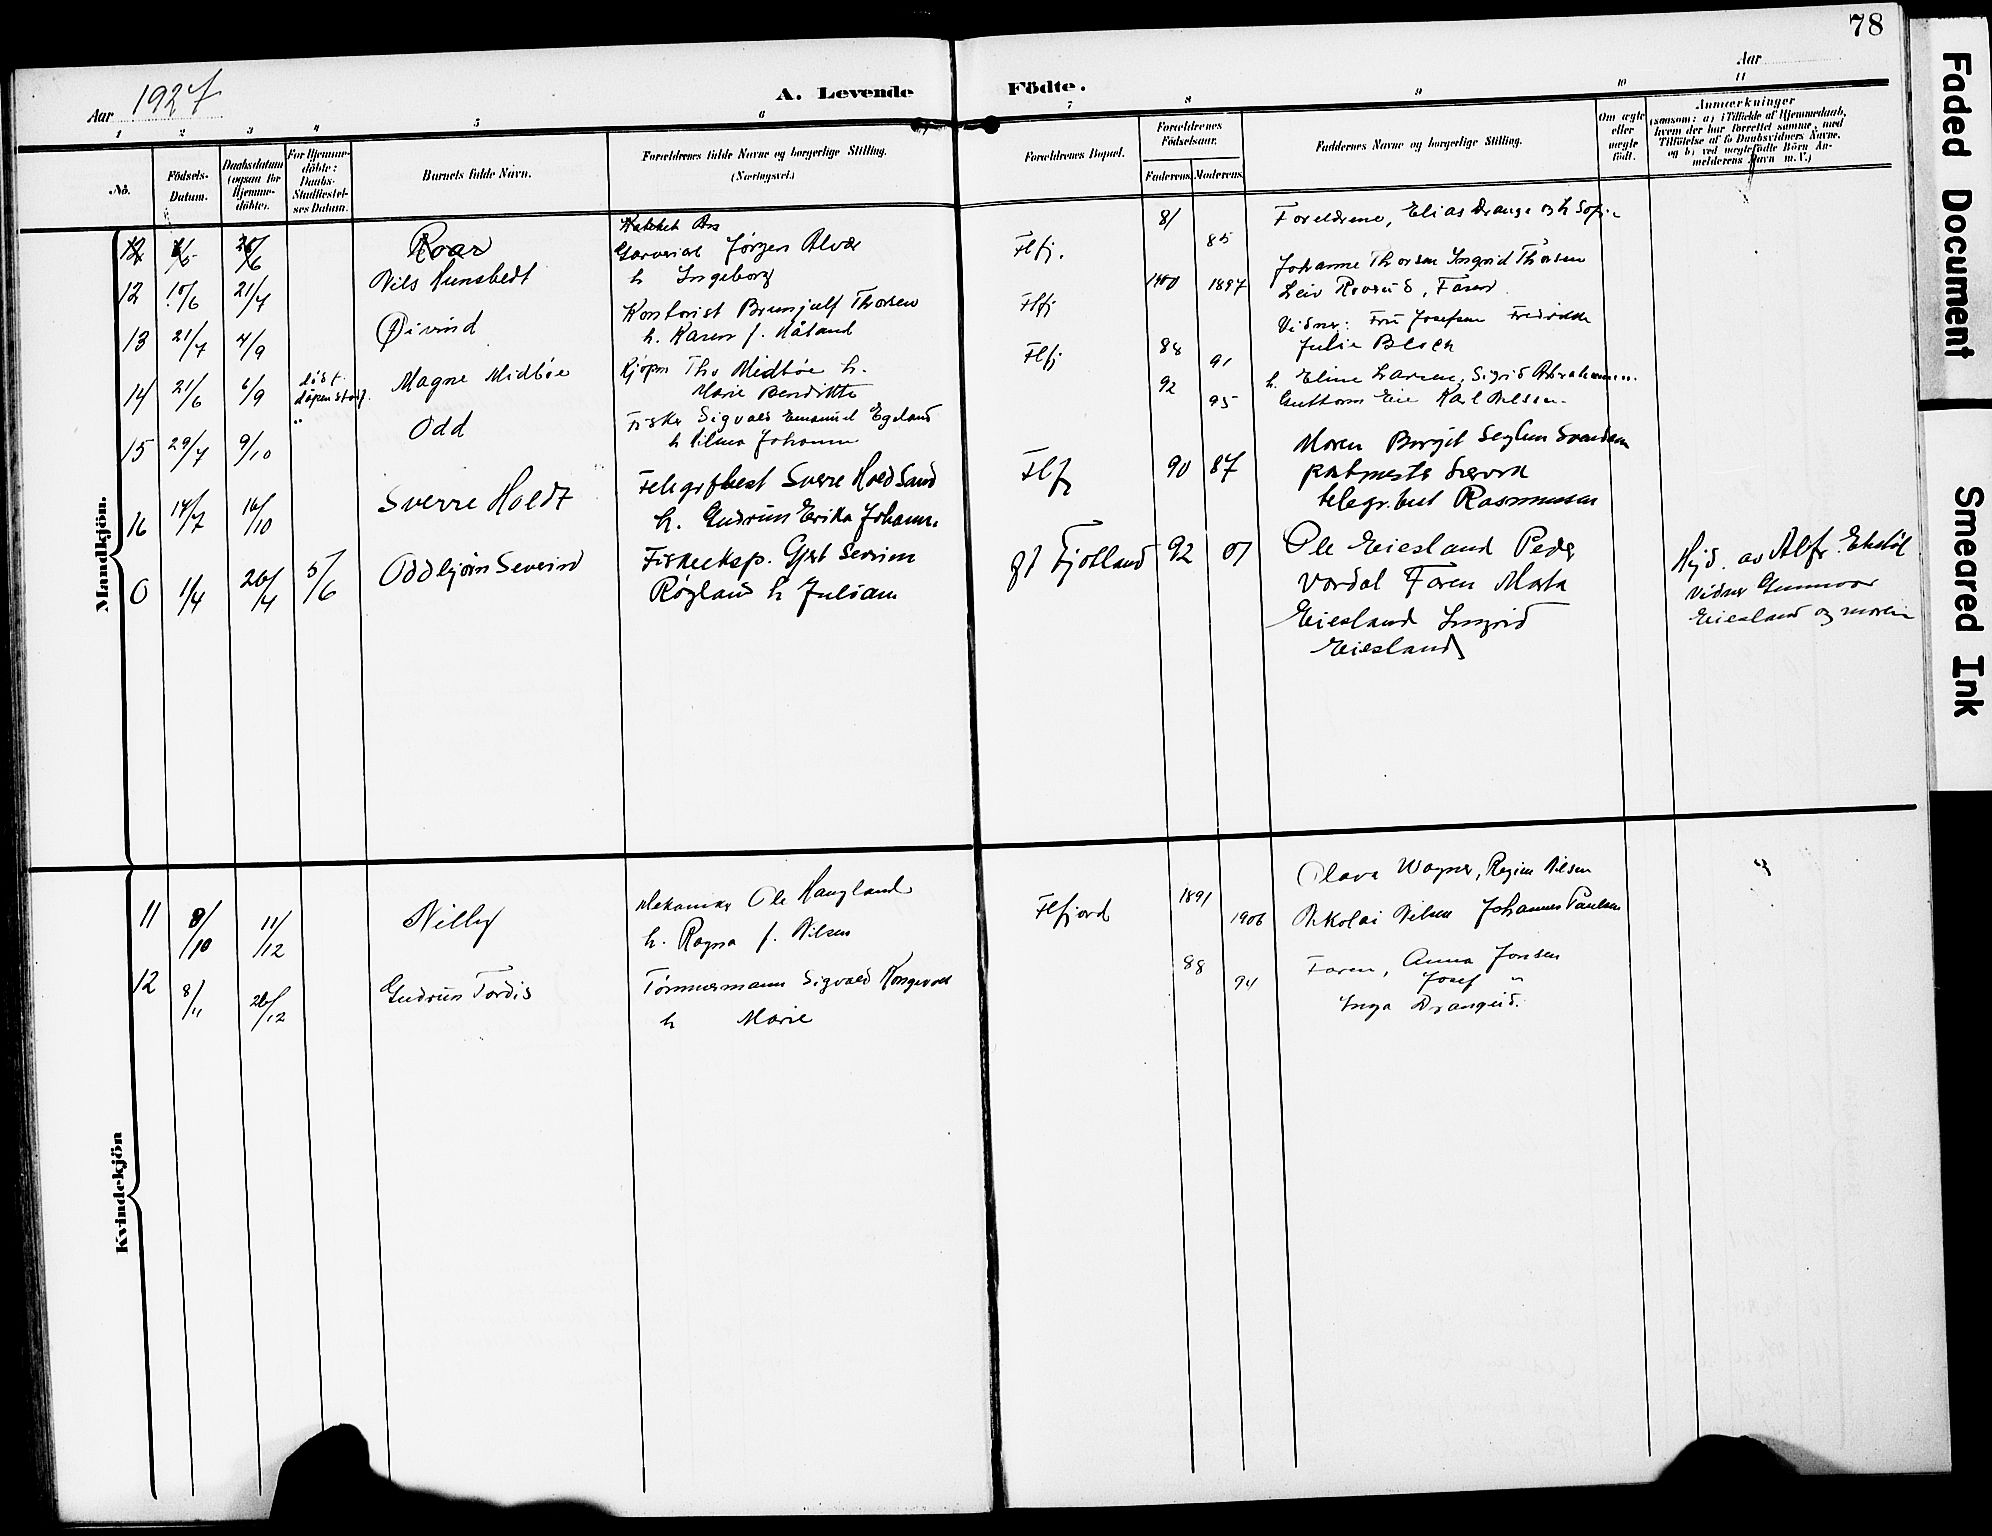 78
Faded Document
Smeared Ink
Aar 1927
A. Levende Födte.
Aar
1 2 3 4 5 6 7 8 9 10 11
No.
Födsels-
Datum.
Daabsdatum
(ogsaa for
Hjemme-
döbte).
For Hjemme-
döbte:
Daabs-
Stadfæstel-
ses Datum.
Barnets fulde Navn.
Forældrenes fulde Navne og borgerlige Stilling.
(Næringsvei.)
Forældrenes Bopæl.
Forældrenes
Födselsaar.
Faderens. Moderens.
Faddernes Navne og borgerlige Stilling.
Om ægte
eller
uægte
födt.
Anmærkninger
(saasom: a) i Tilfælde af Hjemmedaab,
hvem der har forrettet samme, med
Tilföielse af to Daabsvidners Navne,
og b) ved uægtefödte Börn An-
melderens Navn m. V.)
Mandkjön.
Roar
Jørgen Alvær
h Ingeborg
Flfj.
81 85
Foreldrene, Elias Drange og h Sofie
12 10/6 21/7 Nils Hunsbedt
Kontorist Brynjulf Thorsen
h. Karen f. Håland
Flfj
1900 1897
Johanne Thorsen Ingrid Thorsen
Leiv Rossud, Faren
13 21/7 4/9 Øivind
Kjøpm Ths Midbøe h.
Marie Bendikte
Flfj
88 91
Vidner: Fru Josefsen Fredrikke
Julie Bloch
14 21/6 6/9 Magne Midbøe
Fisker Sigvald Emanuel Egeland
h Vilma Johanne
92 95
h. Eline Larsen, Sigrid Abrahamsen
Guttorm Eie Karl Nilsen
15 29/7 9/10 " Odd
Telegrfbest Sverre Hold Sand
h. Gudrun Erika Johanne
Flfj
90 87
Moren Borgit Seglem Svendsen
telegr.best Rasmussen
16 14/7 16/10 Sverre Holdt
0 1/4 20/4 5/6 Oddbjørn Severin
Fiskeeksp. Gjert Severin
Røyland h Juliane
gt Fjotland 92 07
Ole Eiesland Peder
Vordal Faren Marta
Eiesland Ingrid
Eiesland
Hjd. av Alfr. Ekstøl
Vidner Gunnvor
Eiesland og moren
Kvindekjön
11 9/10 11/12 Nilly
Mekaniker Ole Haugland
h. Ragna f. Nilsen
Flfjord
1891 1906
Olava Wagner, Regine Nilsen
Nikolai Nilsen Johannes Paulsen
12 8/11 26/12 Gudrun Tordis
Tømmermann Sigvald Kongevold
h Marie
88 94
Faren, Anna Jonsen
Josef "
Inga Drangeid.